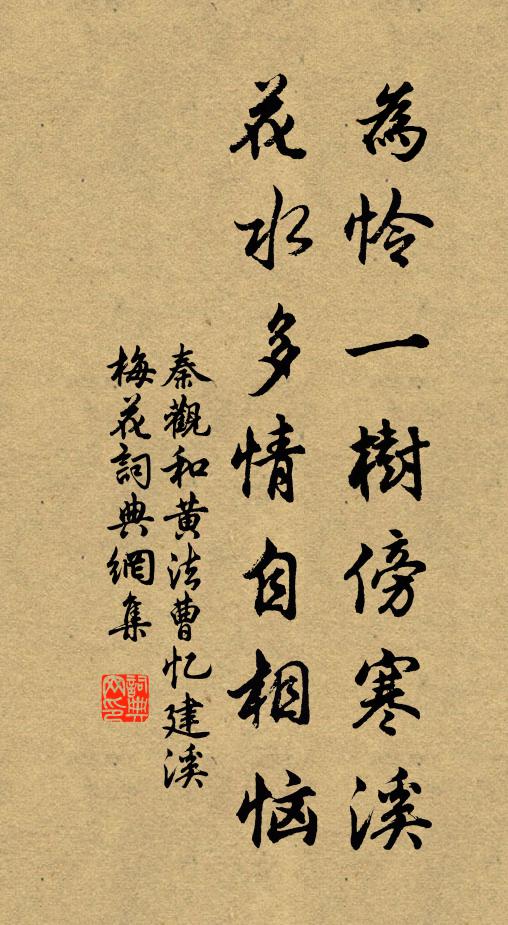 為怜一樹傍寒溪
花水多情自相恼
秦觀和黄法曹忆建溪
梅花詞典網集
詞典網印